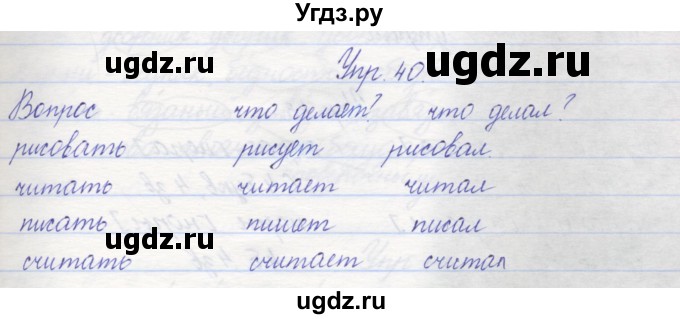 Угдз.ру
ugdz.ru ugdz.ru
Упр. 40.
Вопрос что делает? что делал?
рисовать рисует рисовал.
читать читает читал
писать пишет писал
ugdz.ru ugdz.ru
считать считает считал
ugdz.ru